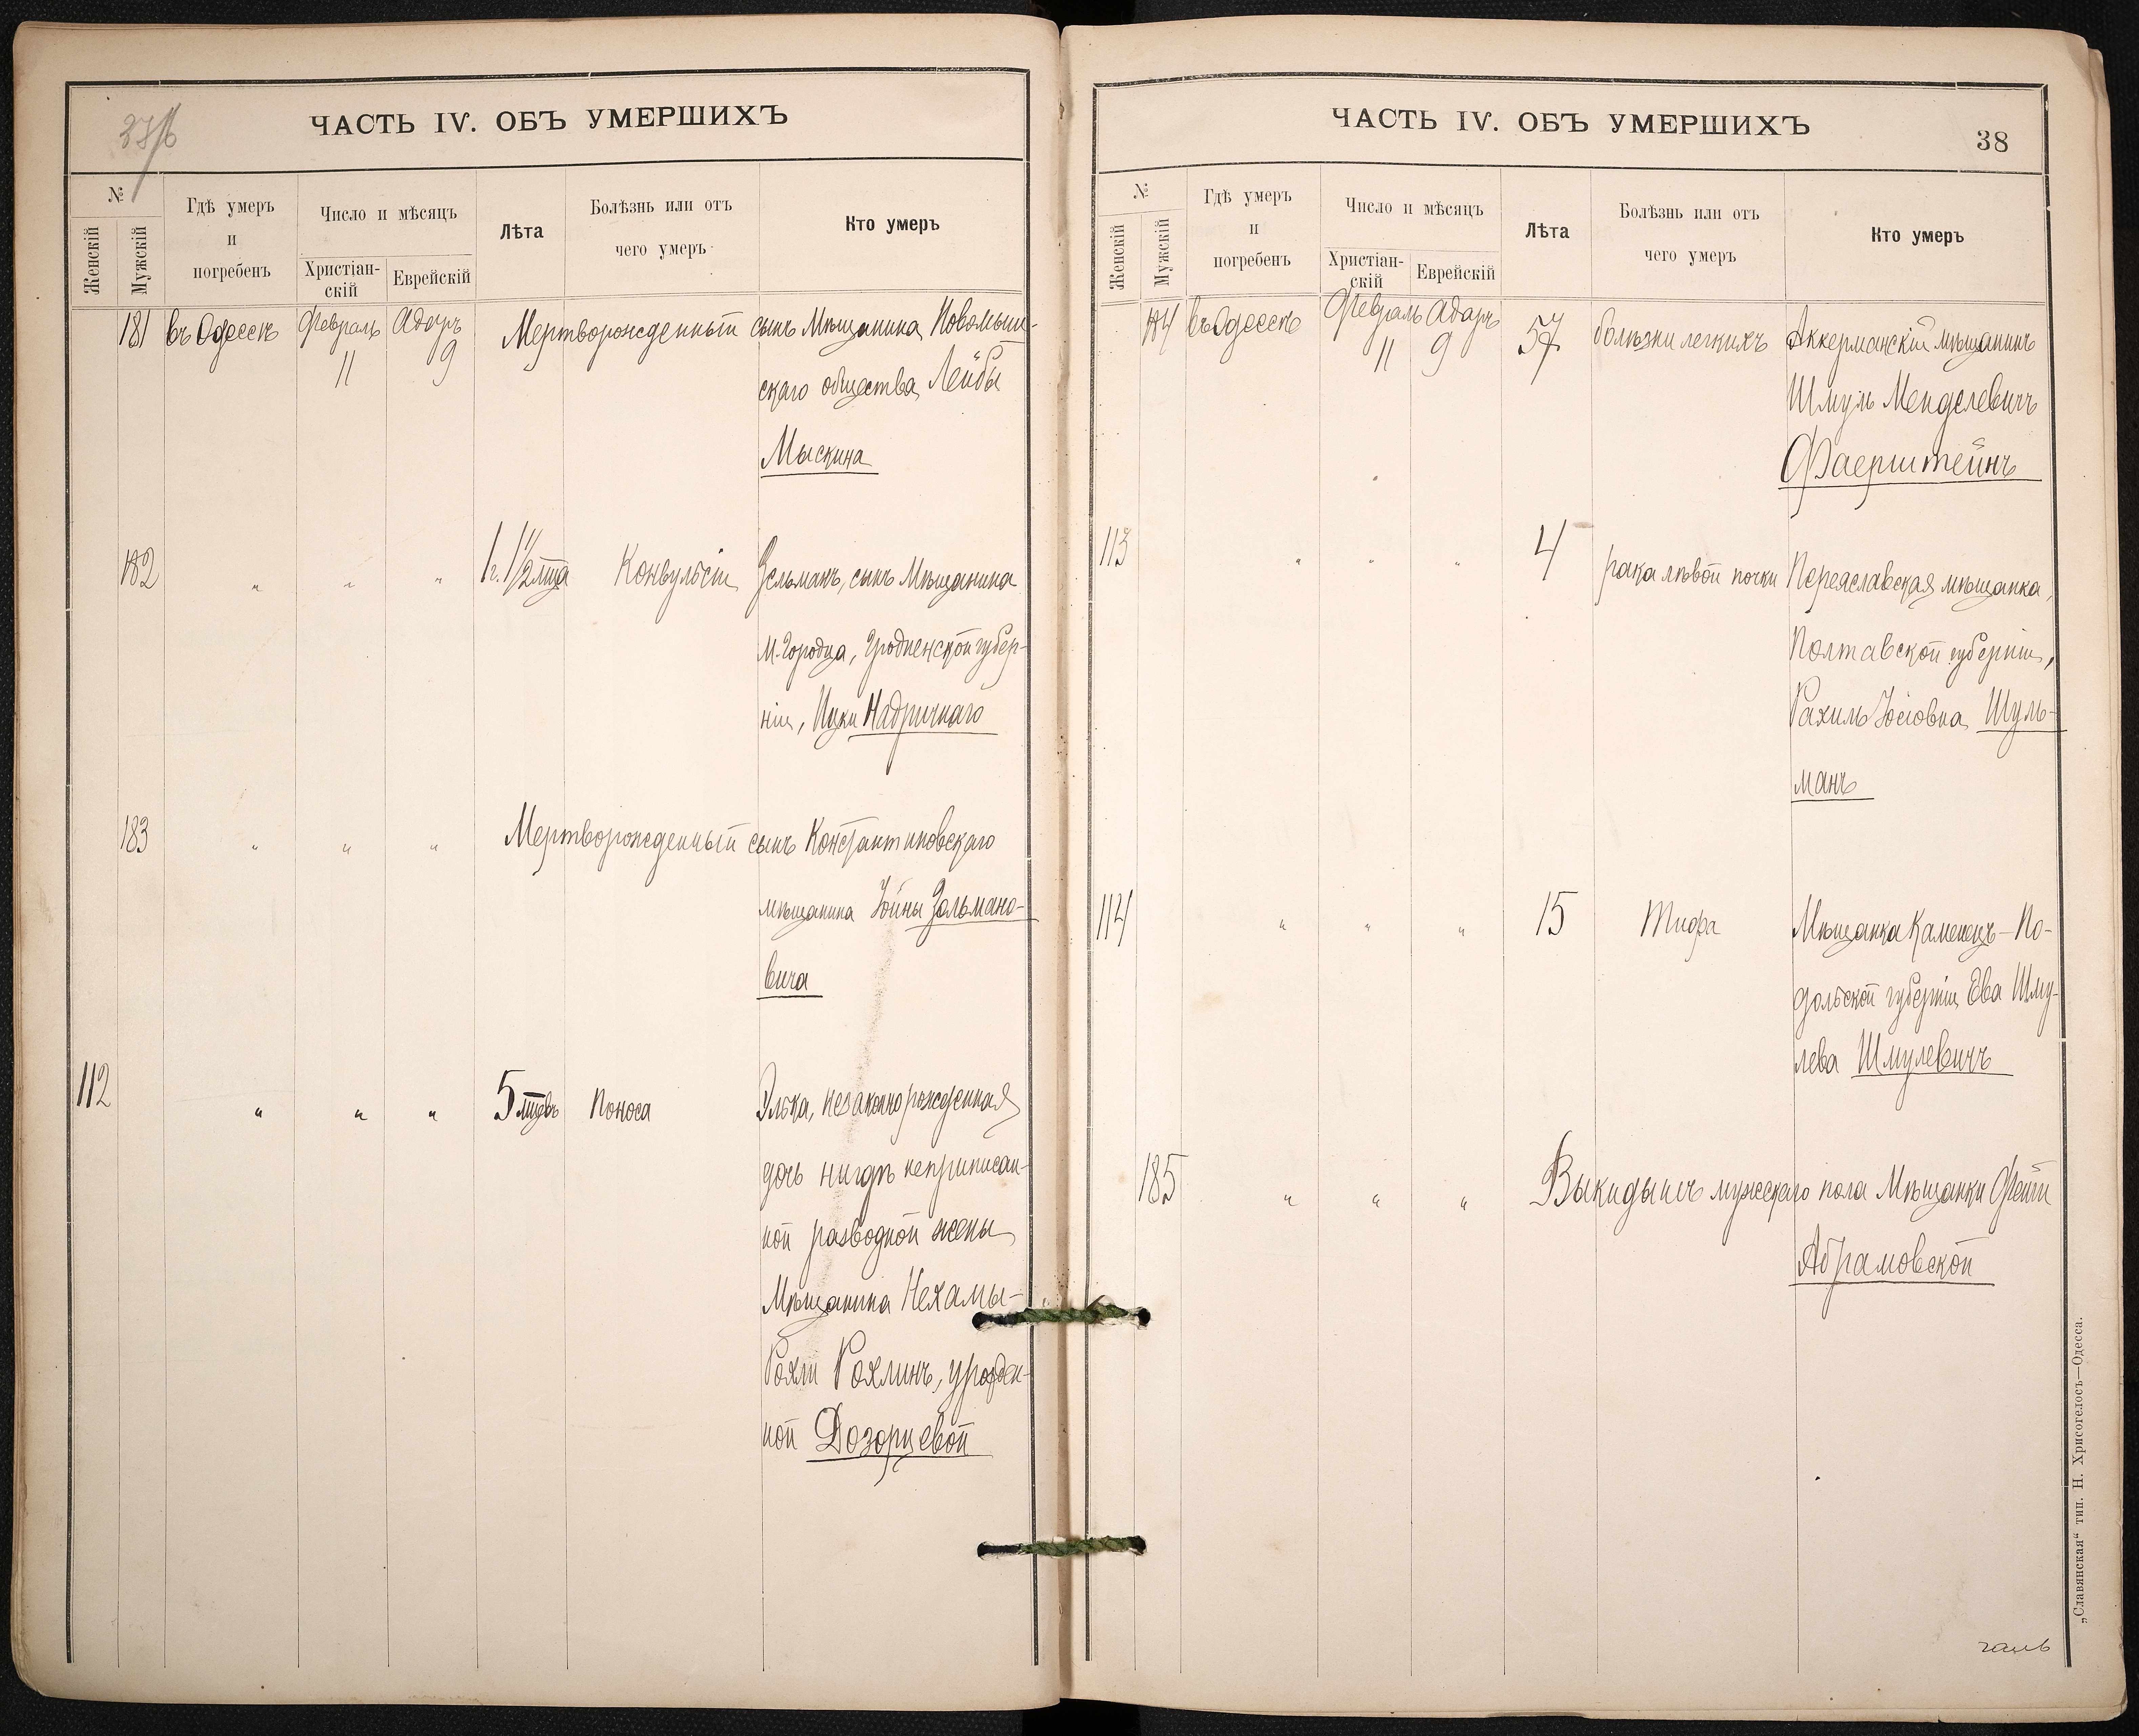 ЧАСТЬ IV. ОБЪ УМЕРШИХЪ
№
Женскій
Мужскій
Гдѣ умеръ
и
погребенъ
Число и мѣсяцъ
Христіан-
скій
Еврейскій
Лѣта
Болѣзнь или отъ
чего умеръ
Кто умеръ
181 въ Одессѣ Февраль Адаръ Мертворожденный сынъ Мѣщанина Новомыш-
11 9 скаго общества Лейбы
Мыскина
182 " " " 1 г. 1 1/2 мца Конвульсіи Зельманъ, сынъ Мѣщанина
м. Городца, Гродненской губер-
ніи, Ицки Надричнаго
183 " " " Мертворожденный сынъ Константиновскаго
мѣщанина Іойны Зальмано-
вича
112 " " " 5 мцевъ Поноса Элька, незаконнорожденная
дочь нигдѣ неприписан-
ной разводной жены
Мѣщанина Нехамы-
Рохли Рохлинъ, урожден-
ной Дозорцевой
ЧАСТЬ IV. ОБЪ УМЕРШИХЪ
38
№
Женскій
Мужскій
Гдѣ умеръ
и
погребенъ
Число и мѣсяцъ
Христіан-
скій
Еврейскій
Лѣта
Болѣзнь или отъ
чего умеръ
Кто умеръ
184 въ Одессѣ Февраль Адаръ 57 болѣзни легкихъ Аккерманскій мѣщанинъ
11 9 Шмуль Менделевичъ
Фаерштейнъ
113 " " " 4 рака лѣвой почки Переяславская мѣщанка,
Полтавской губерніи,
Рахиль Іосіовна Шуль-
манъ
114 " " " 15 Тифа Мѣщанка Каменецъ-По-
дольской губерніи Ева Шму-
лева Шмулевичъ
185 " " " Выкидышъ мужескаго пола Мѣщанки Фейги
Абрамовской
„Славянская“ тип. Н. Хрисогелосъ—Одесса.